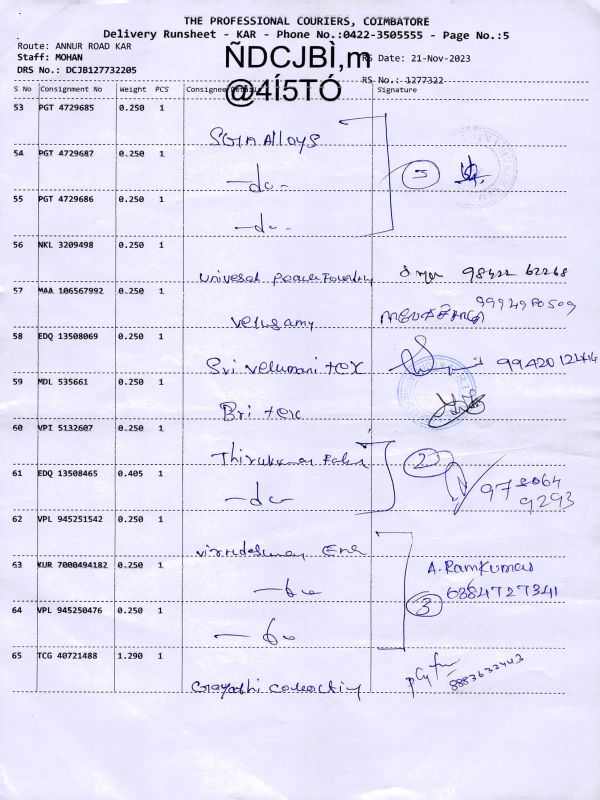 THE PROFESSIONAL COURIERS, COIMBATORE
Delivery Runsheet - KAR - Phone No.:0422-3505555 - Page No.:5
Route: ANNUR ROAD KAR
Staff: MOHAN
DRS No.: DCJB127732205
ÑDCJBÌ,m
@4Í5TÓ
RS Date: 21-Nov-2023
RS No.: 1277322
S No Consignment No Weight PCS Consignee Details Signature
53 PGT 4729685 0.250 1
Alloys
54 PGT 4729687 0.250 1
-do-
5
55 PGT 4729686 0.250 1
-do-
56 NKL 3209498 0.250 1
Universal Foundry 98422 62268
57 MAA 106567992 0.250 1
Velusamy
58 EDQ 13508069 0.250 1
Sri Velumani tex
59 MDL 535661 0.250 1
Bri tex
60 VPI 5132607 0.250 1
Thirukumar
2
61 EDQ 13508465 0.405 1
-do
978064
9293
62 VPL 945251542 0.250 1
63 KUR 7000494182 0.250 1
A.RamKumar
6384727341
64 VPL 945250476 0.250 1
3
65 TCG 40721488 1.290 1
Gayathri